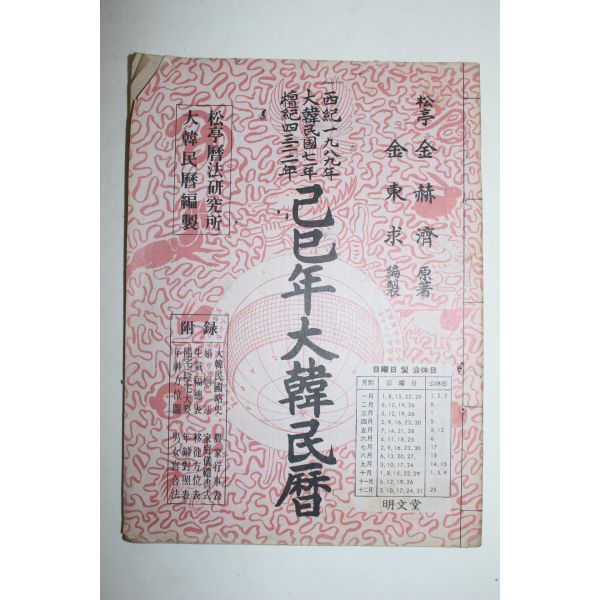 松亭 金赫濟 原著
金東求 編製
西紀一九八九年
大韓民國七一年
檀紀四三二二年
己巳年大韓民曆
松亭曆法硏究所
大韓民曆編製
附錄
大韓民國略史
生氣福德表
陽宅大要
年神方位圖
農家行事表
家庭儀禮書式
移徙方位表
年齡對照表
男女宮合法
日曜日 및 公休日
月別 日曜日 公休日
一月 1, 8, 15, 22, 29 1, 2, 3
二月 5, 12, 19, 26 6
三月 5, 12, 19, 26 1
四月 2, 9, 16, 23, 30 5
五月 7, 14, 21, 28 5, 12
六月 4, 11, 18, 25 6
七月 2, 9, 16, 23, 30 17
八月 6, 13, 20, 27, 15
九月 3, 10, 17, 24 14, 15
十月 1, 8, 15, 22, 29 1, 3, 9
十一月 5, 12, 19, 26
十二月 3, 10, 17, 24, 31 25
明文堂